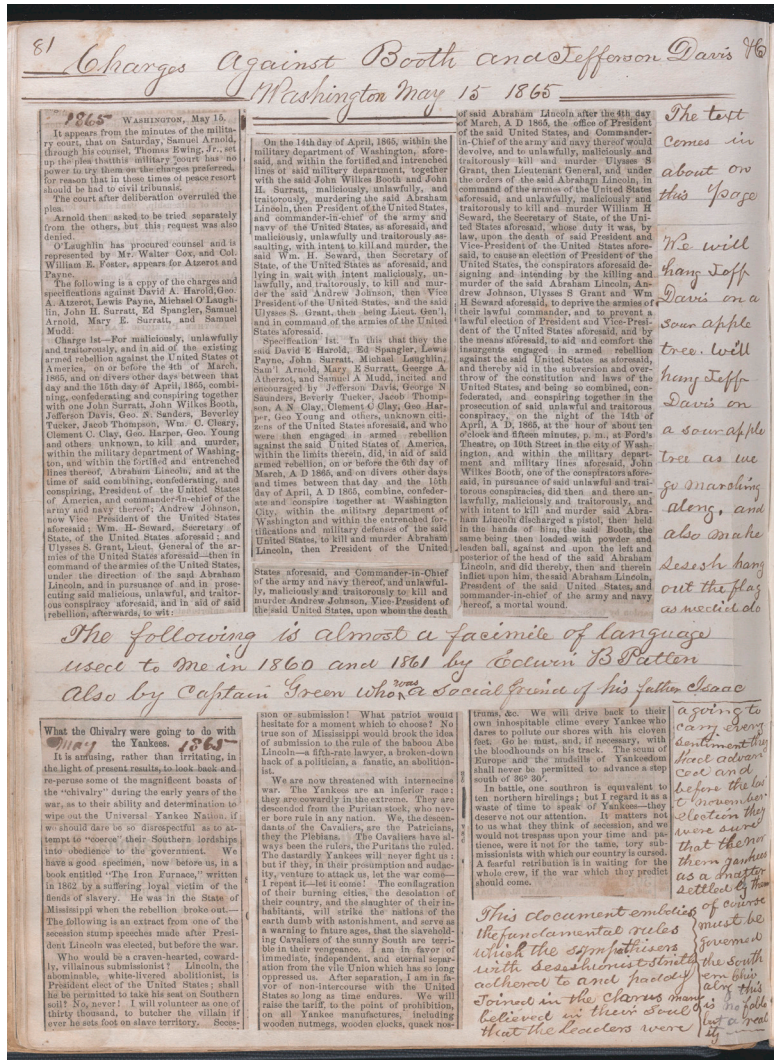 81
Charges Against Booth and Jefferson Davis &c
Washington May 15 1865
1865 WASHINGTON, May 15.
It appears from the minutes of the milita-
ry court, that on Saturday, Samuel Arnold,
through his counsel, Thomas Ewing, Jr., set
up the plea that this military court has no
power to try them on the charges preferred,
for reason that in these times of peace resort
should be had to civil tribunals.
The court after deliberation overruled the
plea.
Arnold then asked to be tried separately
from the others, but this request was also
denied.
O'Laughlin has procured counsel and is
represented by Mr. Walter Cox, and Col.
William E. Foster, appears for Atzerot and
Payne.
The following is a copy of the charges and
specifications against David A. Harold, Geo.
A. Atzerot, Lewis Payne, Michael O'Laugh-
lin, John H. Surratt, Ed Spangler, Samuel
Arnold, Mary E. Surratt, and Samuel
Mudd.
Charge 1st—For maliciously, unlawfully
and traitorously, and in aid of the existing
armed rebellion against the United States of
America, on or before the 4th of March,
1865, and on divers other days between that
day and the 15th day of April, 1865, combi-
ning, confederating and conspiring together
with one John Surratt, John Wilkes Booth,
Jefferson Davis, Geo. N. Sanders, Beverley
Tucker, Jacob Thompson, Wm. C. Cleary,
Clement C. Clay, Geo. Harper, Geo. Young
and others unknown, to kill and murder,
within the military department of Washing-
ton, and within the fortified and entrenched
lines thereof, Abraham Lincoln, and at the
time of said combining, confederating, and
conspiring, President of the United States
of America, and commander-in-chief of the
army and navy thereof; Andrew Johnson,
now Vice President of the United States
aforesaid; Wm. H. Seward, Secretary of
State, of the United States aforesaid; and
Ulysses S. Grant, Lieut. General of the ar-
mies of the United States aforesaid—then in
command of the armies of the United States,
under the direction of the said Abraham
Lincoln, and in pursuance of and in prose-
cuting said malicious, unlawful, and traitor-
ous conspiracy aforesaid, and in aid of said
rebellion, afterwards, to wit:
On the 14th day of April, 1865, within the
military department of Washington, afore-
said, and within the fortified and intrenched
lines of said military department, together
with the said John Wilkes Booth and John
H. Surratt, maliciously, unlawfully, and
traitorously, murdering the said Abraham
Lincoln, then President of the United States,
and commander-in-chief of the army and
navy of the United States, as aforesaid, and
maliciously, unlawfully und traitorously as-
saulting, with intent to kill and murder, the
said Wm. H. Seward, then Secretary of
State, of the United States as aforesaid, and
lying in wait with intent maliciously, un-
lawfully, and traitorously, to kill and mur-
der the said Andrew Johnson, then Vice
President of the United States, and the said
Ulysses S. Grant, then being Lieut. Gen'l,
and in command of the armies of the United
States aforesaid.
Specification 1st. In this that they the
said David E Harold, Ed Spangler, Lewis
Payne, John Surratt, Michael Loughlin,
Sam'l Arnold, Mary E Surratt, George A
Atherzot, and Samuel A Mudd, incited and
encouraged by Jefferson Davis, George N
Saunders, Beverly Tucker, Jacob Thomp-
son, A N Clay, Clement C Clay, Geo Har-
per, Geo Young and others, unknown citi-
zens of the United States aforesaid, and who
were then engaged in armed rebellion
against the said United States of America,
within the limits therein, did, in aid of said
armed rebellion, on or before the 6th day of
March, A D 1865, and on divers other days
and times between that day and the 15th
day of April, A D 1865, combine, confeder-
ate and conspire together at Washington
City, within the military department of
Washington and within the entrenched for-
tifications and military defenses of the said
United States, to kill and murder Abraham
Lincoln, then President of the United
States aforesaid, and Commander-in-Chief
of the army and navy thereof, and unlawful-
ly, maliciously and traitorously to kill and
murder Andrew Johnson, Vice-President of
the said United States, upon whom the death
of said Abraham Lincoln after the 4th day
of March, A D 1865, the office of President
of the said United States, and Commander-
in-Chief of the army and navy thereof would
devolve, and to unlawfully, maliciously and
traitorously kill and murder Ulysses S
Grant, then Lieutenant General, and under
the orders of the said Abraham Lincoln, in
command of the armies of the United States
aforesaid, and unlawfully, maliciously and
traitorously to kill and murder William H
Seward, the Secretary of State, of the Uni-
ted States aforesaid, whose duty it was, by
law, upon the death of said President and
Vice-President of the United States afore-
said, to cause an election of President of the
United States, the conspirators aforesaid de-
signing and intending by the killing and
murder of the said Abraham Lincoln, An-
drew Johnson, Ulysses S Grant and Wm
H Seward aforesaid, to deprive the armies of
their lawful commander, and to prevent a
lawful election of President and Vice-Presi-
dent of the United States aforesaid, and by
the means aforesaid, to aid and comfort the
insurgents engaged in armed rebellion
against the said United States as aforesaid,
and thereby aid in the subversion and over-
throw of the constitution and laws of the
United States, and being so combined, con-
federated, and conspiring together in the
prosecution of said unlawful and traitorous
conspiracy, on the night of the 14th of
April, A D 1865, at the hour of about ten
o'clock and fifteen minutes, p. m., at Ford's
Theatre, on 10th Street in the city of Wash-
ington, and within the military depart-
ment and military lines aforesaid, John
Wilkes Booth, one of the conspirators afore-
said, in pursuance of said unlawful and trai-
torous conspiracies, did then and there un-
lawfully, maliciously and traitorously, and
with intent to kill and murder said Abra-
ham Lincoln discharged a pistol, then held
in the hands of him, the said Booth, the
same being then loaded with powder and
leaden ball, against and upon the left and
posterior of the head of the said Abraham
Lincoln, and did thereby, then and therein
inflict upon him, the said Abraham Lincoln,
President of the said United States, and
commander-in-chief of the army and navy
thereof, a mortal wound.
The text
comes in
about on
this Page
We will
hang Jeff
Davis on a
sour apple
tree. will
hang Jeff
Davis on
a sour apple
tree as we
go marching
along, and
also make
Sesesh hang
out the flag
as we did do
The following is almost a facimile of language
used to me in 1860 and 1861 by Edwin B Patten
Also by Captain Green who was a Social friend of his father Isaac
What the Chivalry were going to do with
the Yankees.
May 1865
It is amusing, rather than irritating, in
the light of present results, to look back and
re-peruse some of the magnificent boasts of
the "chivalry" during the early years of the
war, as to their ability and determination to
wipe out the Universal Yankee Nation. if
we should dare be so disrespectful as to at-
tempt to "coerce" their Southern lordships
into obedience to the government. We
have a good specimen, now before us, in a
book entitled "The Iron Furnace," written
in 1862 by a suffering loyal victim of the
fiends of slavery. He was in the State of
Mississippi when the rebellion broke out.—
The following is an extract from one of the
secession stump speeches made after Presi-
dent Lincoln was elected, but before the war.
Who would be a craven-hearted, coward-
ly, villainous submissionist? Lincoln, the
abominable, white-livered abolitionist, is
President elect of the United States; shall
he be permitted to take his seat on Southern
soil? No, never! I will volunteer as one of
thirty thousand, to butcher the villain if
ever he sets foot on slave territory. Seces-
sion or submission! What patriot would
hesitate for a moment which to choose? No
true son of Mississippi would brook the idea
of submission to the rule of the baboon Abe
Lincoln—a fifth-rate lawyer, a broken-down
hack of a politician, a fanatic, an abolition-
ist.
We are now threatened with internecine
war. The Yankees are an inferior race;
they are cowardly in the extreme. They are
descended from the Puritan stock, who nev-
er bore rule in any nation. We, the descen-
dants of the Cavaliers, are the Patricians,
they the Plebians. The Cavaliers have al-
ways been the rulers, the Puritans the ruled.
The dastardly Yankees will never fight us;
but if they, in their presumption and audac-
ity, venture to attack us, let the war come—
I repeat it—let it come! The conflagration
of their burning cities, the desolation of
their country, and the slaughter of their in-
habitants, will strike the nations of the
earth dumb with astonishment, and serve as
a warning to future ages, that the slavehold-
ing Cavaliers of the sunny South are terri-
ble in their vengeance. I am in favor of
immediate, independent, and eternal separ-
ation from the vile Union which has so long
oppressed us. After separation, I am in fa-
vor of non-intercourse with the United
States so long as time endures. We will
raise the tariff, to the point of prohibition,
on all Yankee manufactures, including
wooden nutmegs, wooden clocks, quack nos-
trums, &c. We will drive back to their
own inhospitable clime every Yankee who
dares to pollute our shores with his cloven
feet. Go he must, and, if necessary, with
the bloodhounds on his track. The scum of
Europe and the mudsills of Yankeedom
shall never be permitted to advance a step
south of 36° 30′.
In battle, one southron is equivalent to
ten northern hirelings; but I regard it as a
waste of time to speak of Yankees—they
deserve not our attention. It matters not
to us what they think of secession, and we
would not trespass upon your time and pa-
tience, were it not for the tame, tory sub-
missionists with which our country is cursed.
A fearful retribution is waiting for the
whole crew, if the war which they predict
should come.
This document embodies
the fundamental rules
which the sympathisers
with Sesashionist strictly
adhered to and
Joined in the Chorus many
believed in their Soul
that the Leaders were
a going to
carry every
sentiment they
had advan
ced and
before the las
t November
election they
were sure
that the nor
thern yankees
as a matter
settled by them
of course
must be
governed
the South
ern Chiv
alry this
is no fable
but a real
ity